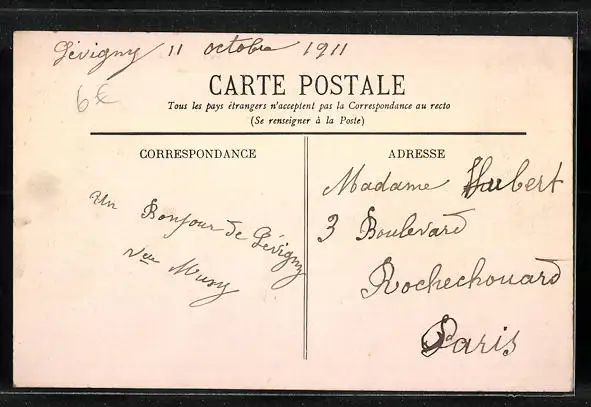 Gévigny 11 octobre 1911
6€
CARTE POSTALE
Tous les pays étrangers n'acceptent pas la Correspondance au recto
(Se renseigner à la Poste)
CORRESPONDANCE
Un Bonjour de Gévigny
Vve
ADRESSE
Madame Hubert
3 Boulevard
Rochechouard
Paris